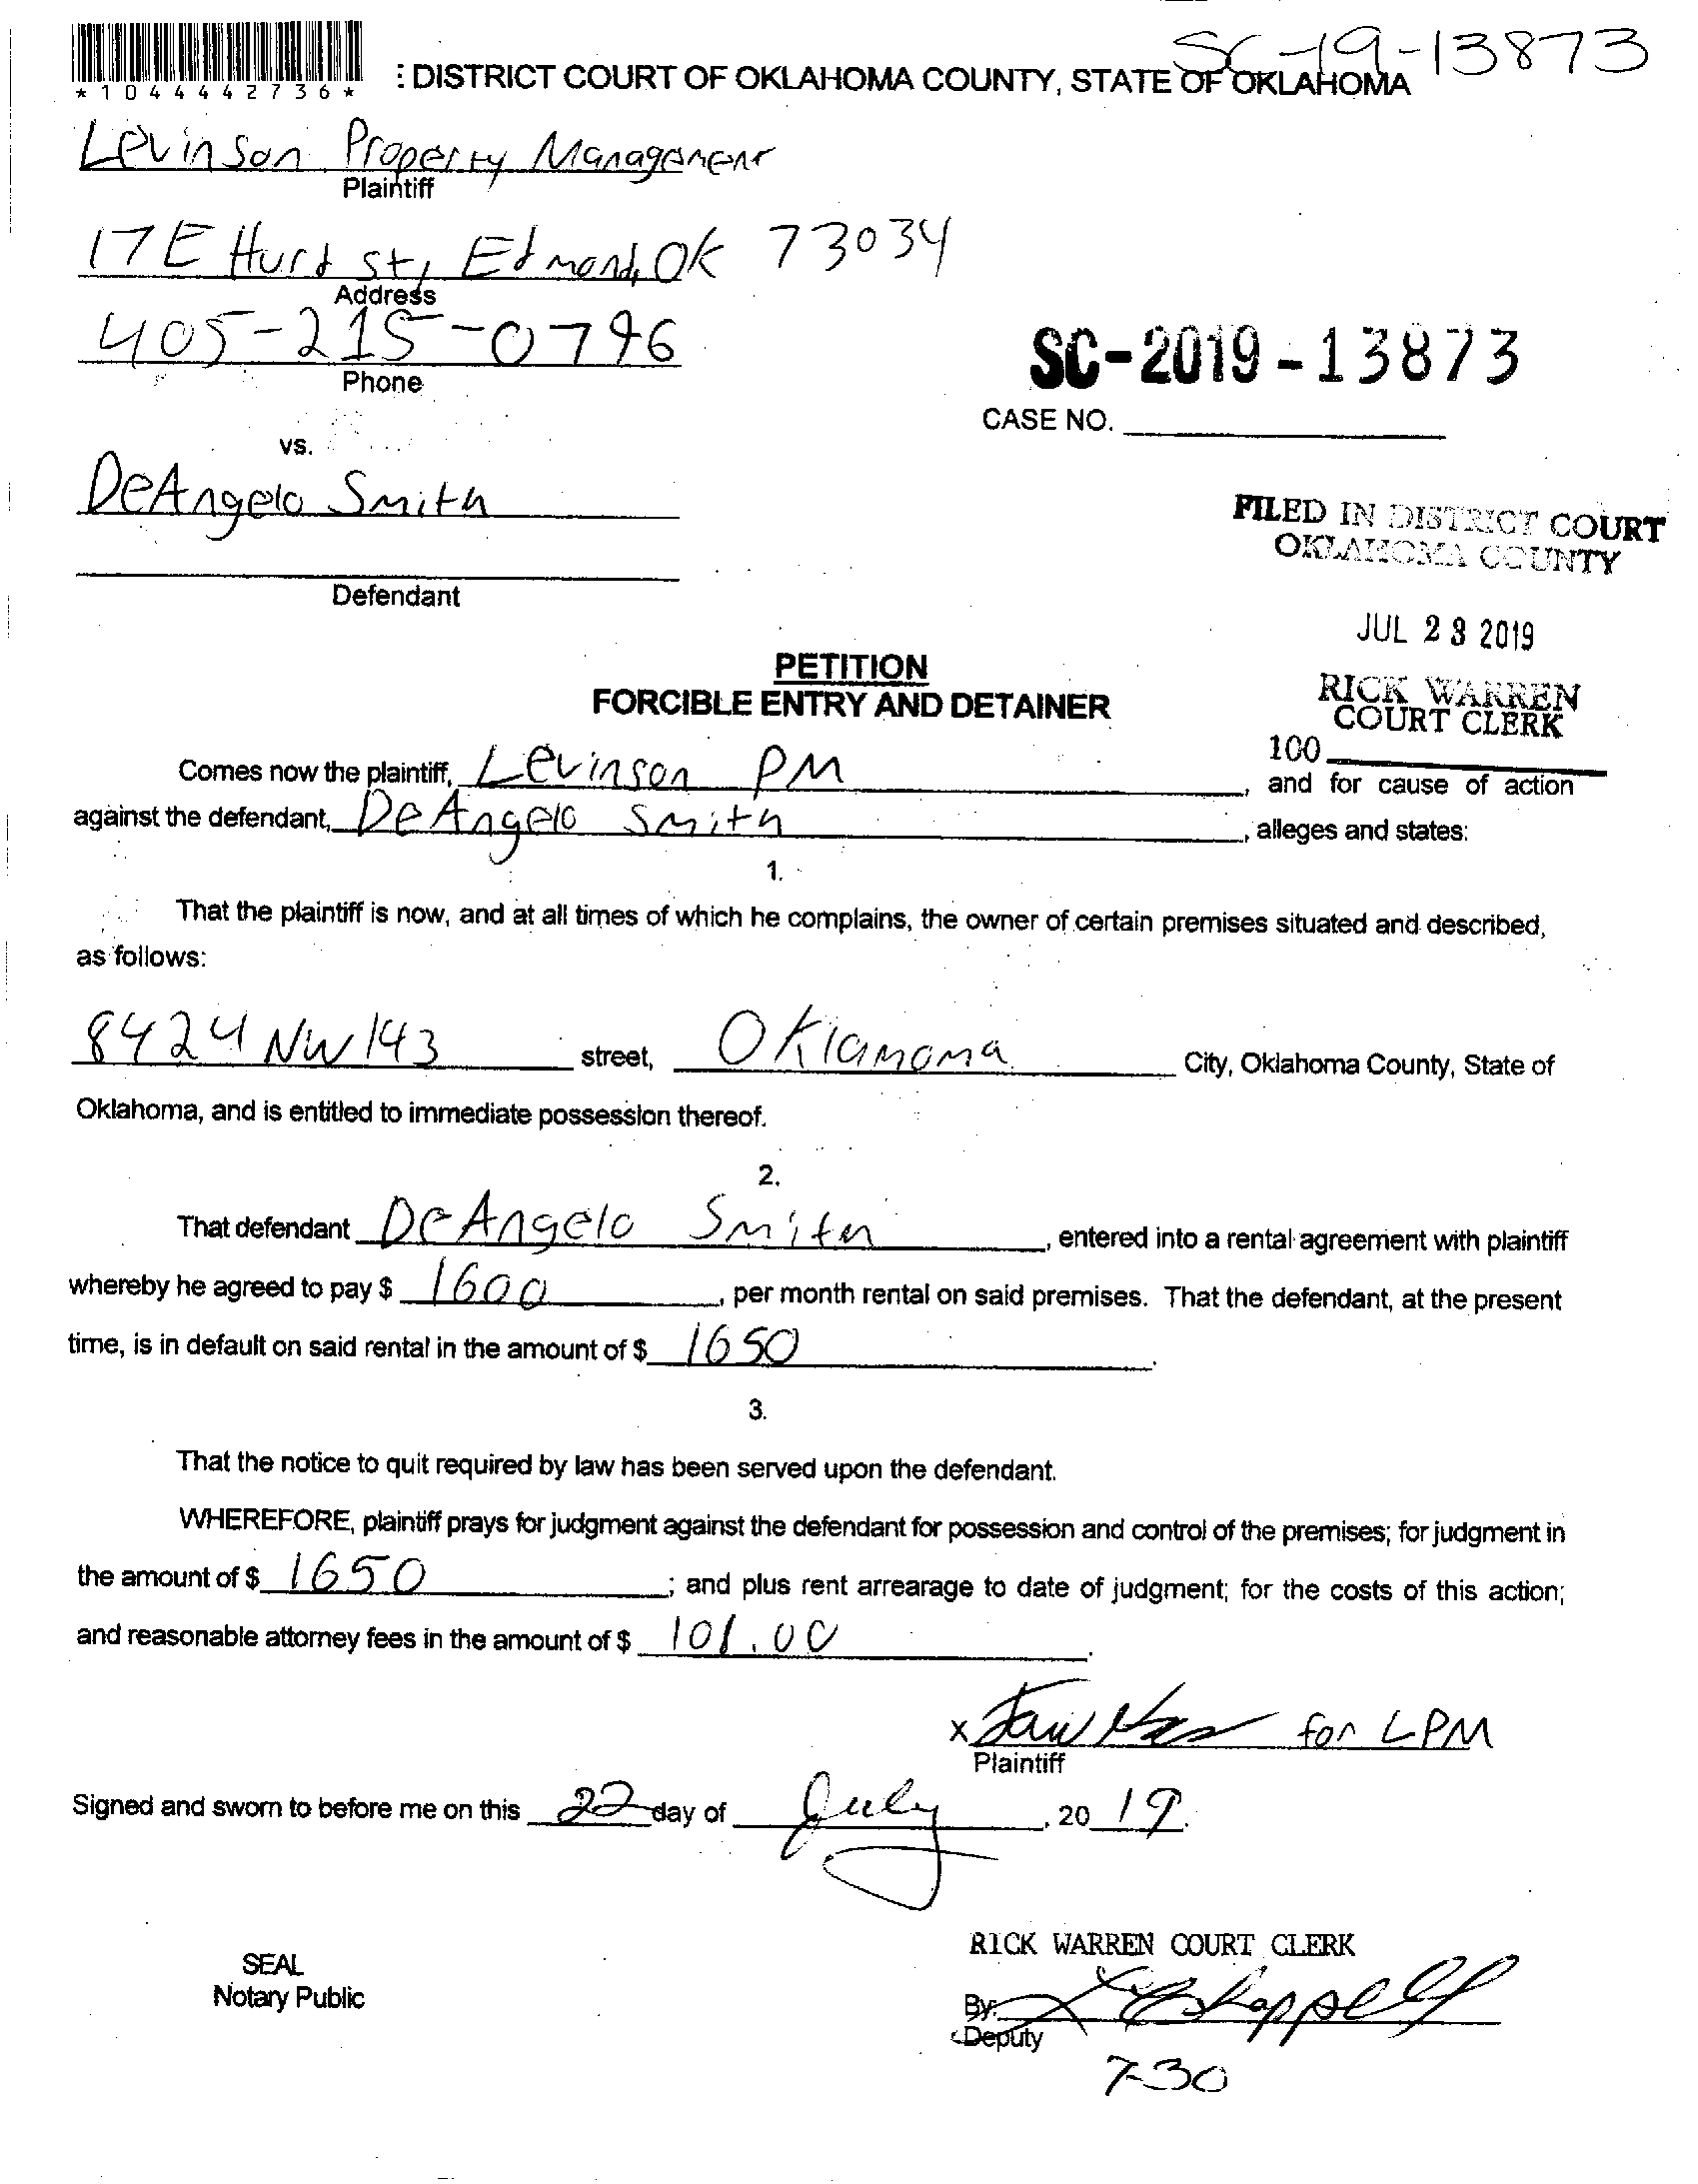 SC-19-13873
*1044442736*
: DISTRICT COURT OF OKLAHOMA COUNTY, STATE OF OKLAHOMA
Levinson Property Management
Plaintiff
17 E Hurd St, Edmond, OK 73034
Address
405-215-0796
Phone
SC-2019-13873
CASE NO.
vs.
DeAngelo Smith
FILED IN DISTRICT COURT
OKLAHOMA COUNTY
Defendant
JUL 23 2019
PETITION
FORCIBLE ENTRY AND DETAINER
RICK WARREN
COURT CLERK
100
Comes now the plaintiff, Levinson PM, and for cause of action
against the defendant, DeAngelo Smith, alleges and states:
1.
That the plaintiff is now, and at all times of which he complains, the owner of certain premises situated and described,
as follows:
8424 NW 143 street, Oklahoma City, Oklahoma County, State of
Oklahoma, and is entitled to immediate possession thereof.
2.
That defendant DeAngelo Smith, entered into a rental agreement with plaintiff
whereby he agreed to pay $ 1600, per month rental on said premises. That the defendant, at the present
time, is in default on said rental in the amount of $ 1650.
3.
That the notice to quit required by law has been served upon the defendant.
WHEREFORE, plaintiff prays for judgment against the defendant for possession and control of the premises; for judgment in
the amount of $ 1650; and plus rent arrearage to date of judgment; for the costs of this action;
and reasonable attorney fees in the amount of $ 101.00.
x for LPM
Plaintiff
Signed and sworn to before me on this 22 day of July, 2019.
RICK WARREN COURT CLERK
SEAL
Notary Public
By:
Deputy
7-30